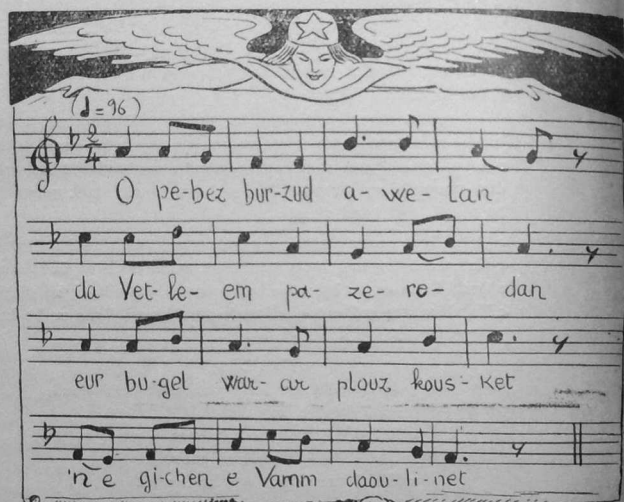 (♩=96)
2/4
O pe-bez bur-zud a-we-lan
da Vet-le-em pa-ze-re-dan
eur bu-gel war-ar plouz kous-ket
'n e gi-chen e Vamm daou-li-net